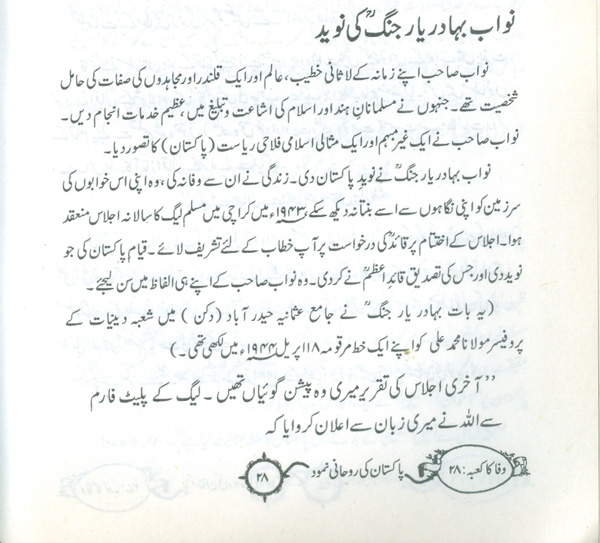 نواب بہادر یار جنگؒ کی نوید
نواب صاحب اپنے زمانہ کے لاثانی خطیب، عالم اور ایک قلندر اور مجاہدوں کی صفات کی حامل
شخصیت تھے۔ جنہوں نے مسلمانانِ ہند اور اسلام کی اشاعت و تبلیغ میں، عظیم خدمات انجام دیں۔
نواب صاحب نے ایک غیر مبہم اور ایک مثالی اسلامی فلاحی ریاست (پاکستان) کا تصور دیا۔
نواب بہادر یار جنگؒ نے نویدِ پاکستان دی۔ زندگی نے ان سے وفا نہ کی، وہ اپنی اس خوابوں کی
سرزمین کو اپنی نگاہوں سے اسے بنتا نہ دیکھ سکے، ۱۹۴۳ء میں کراچی میں مسلم لیگ کا سالانہ اجلاس منعقد
ہوا۔ اجلاس کے اختتام پر قائدؒ کی درخواست پر آپ خطاب کے لئے تشریف لائے۔ قیام پاکستان کی جو
نوید دی اور جس کی تصدیق قائدِ اعظمؒ نے کر دی۔ وہ نواب صاحب کے اپنے ہی الفاظ میں سن لیجئے۔
(یہ بات بہادر یار جنگؒ نے جامع عثمانیہ حیدر آباد (دکن) میں شعبہ دینیات کے
پروفیسر مولانا محمد علی کو اپنے ایک خط مرقومہ ۱۸ اپریل ۱۹۴۴ء میں لکھی تھی۔)
’’آخری اجلاس کی تقریر میری وہ پیشن گوئیاں تھیں۔ لیگ کے پلیٹ فارم
سے اللہ نے میری زبان سے اعلان کروایا کہ
وفا کا کعبہ: ۲۸ پاکستان کی روحانی نمود ۲۸